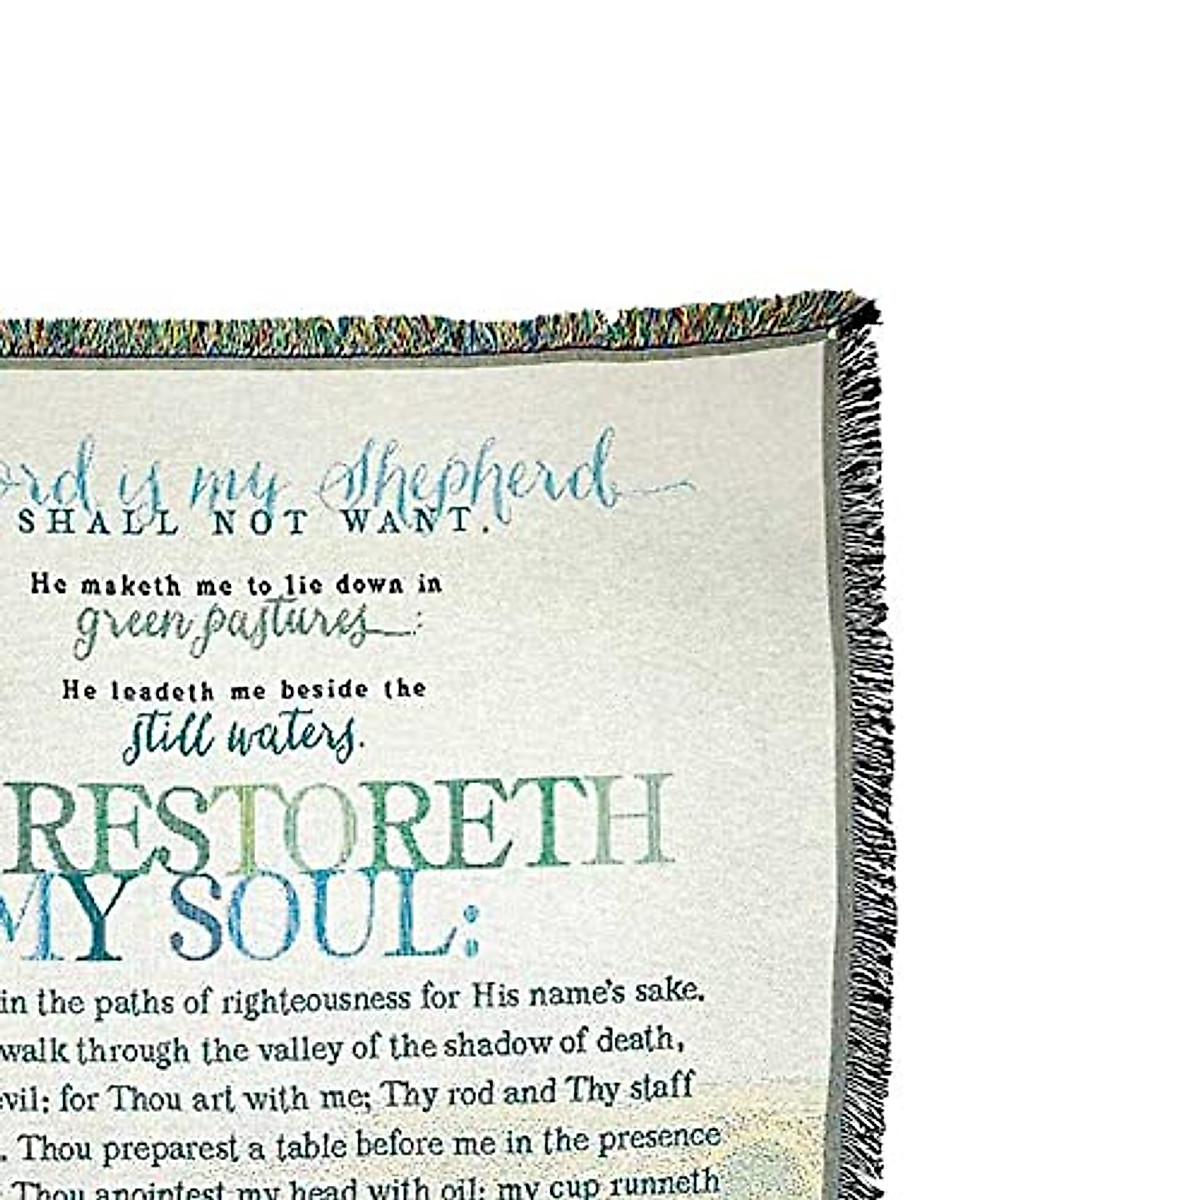 ord is my Shepherd
SHALL NOT WANT.
He maketh me to lie down in
green pastures:
He leadeth me beside the
still waters.
RESTORETH
MY SOUL:
in the paths of righteousness for His name's sake.
walk through the valley of the shadow of death,
evil: for Thou art with me; Thy rod and Thy staff
. Thou preparest a table before me in the presence
Thou anointest my head with oil; my cup runneth